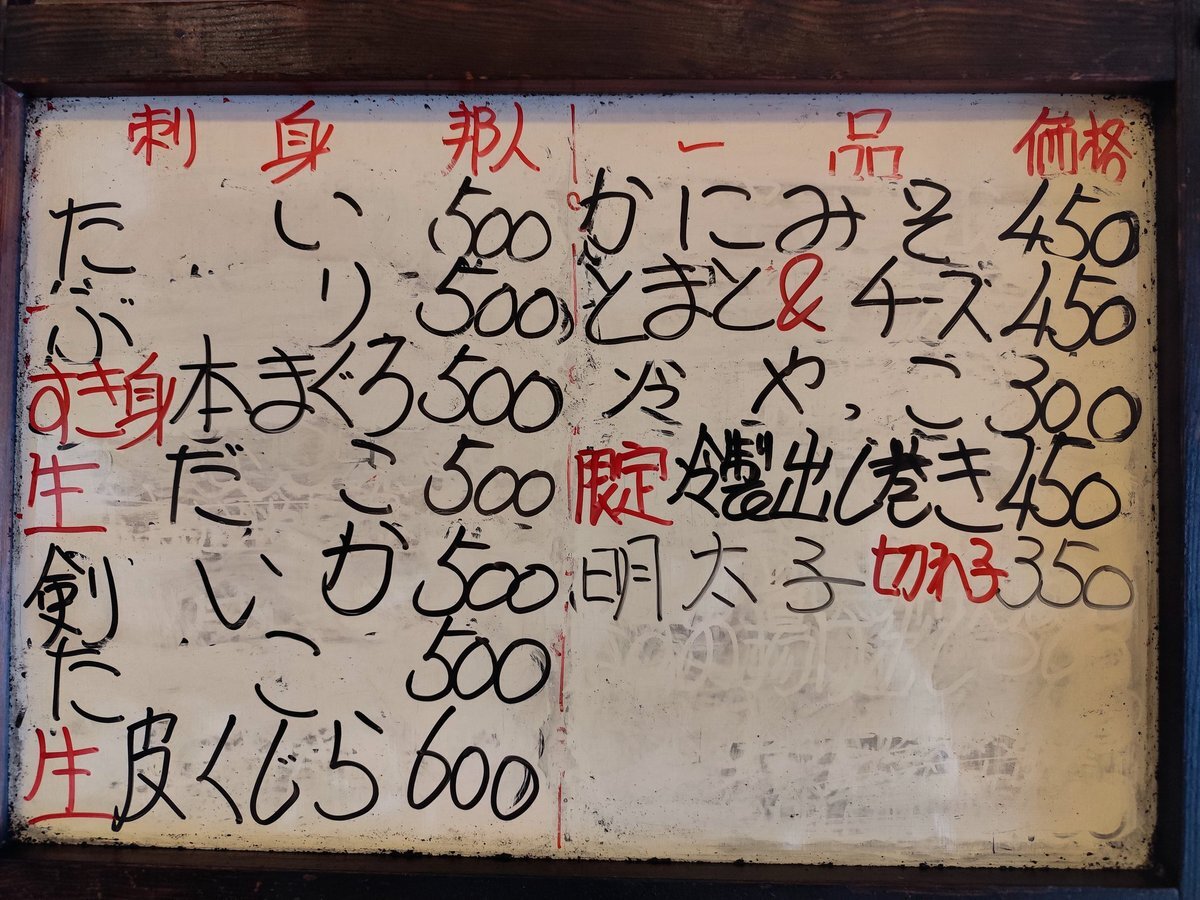 刺身 邦人
たい 500
ぶり 500
すき身本まぐろ 500
生だこ 500
剣いか 500
たこ 500
生皮くじら 600
一品 価格
かにみそ 450
とまと&チーズ 450
冷やっこ 300
限定冷製出し巻き 450
明太子切れ子 350